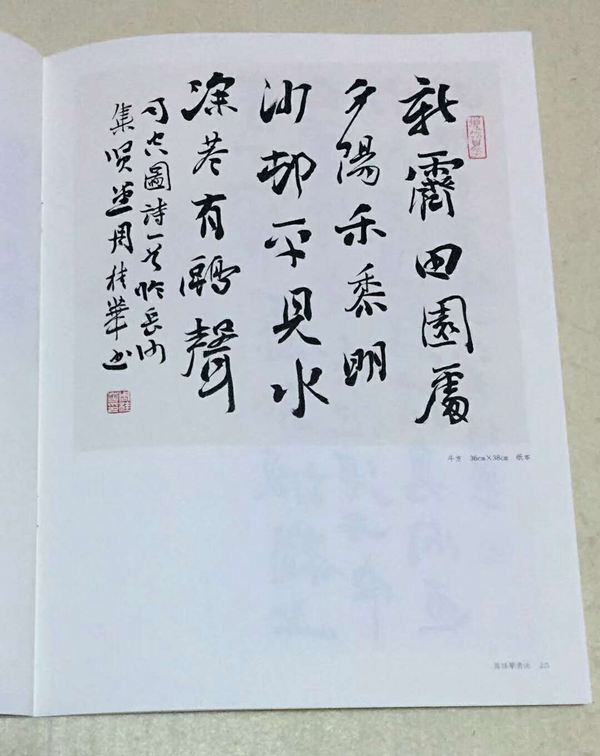 新霽田園處
夕陽禾黍明
沙邨平見水
深巷有鷗聲
司空圖詩一首 長沙
集賢 周桂華书
斗方 36cm×38cm 纸本
周桂華書法 25